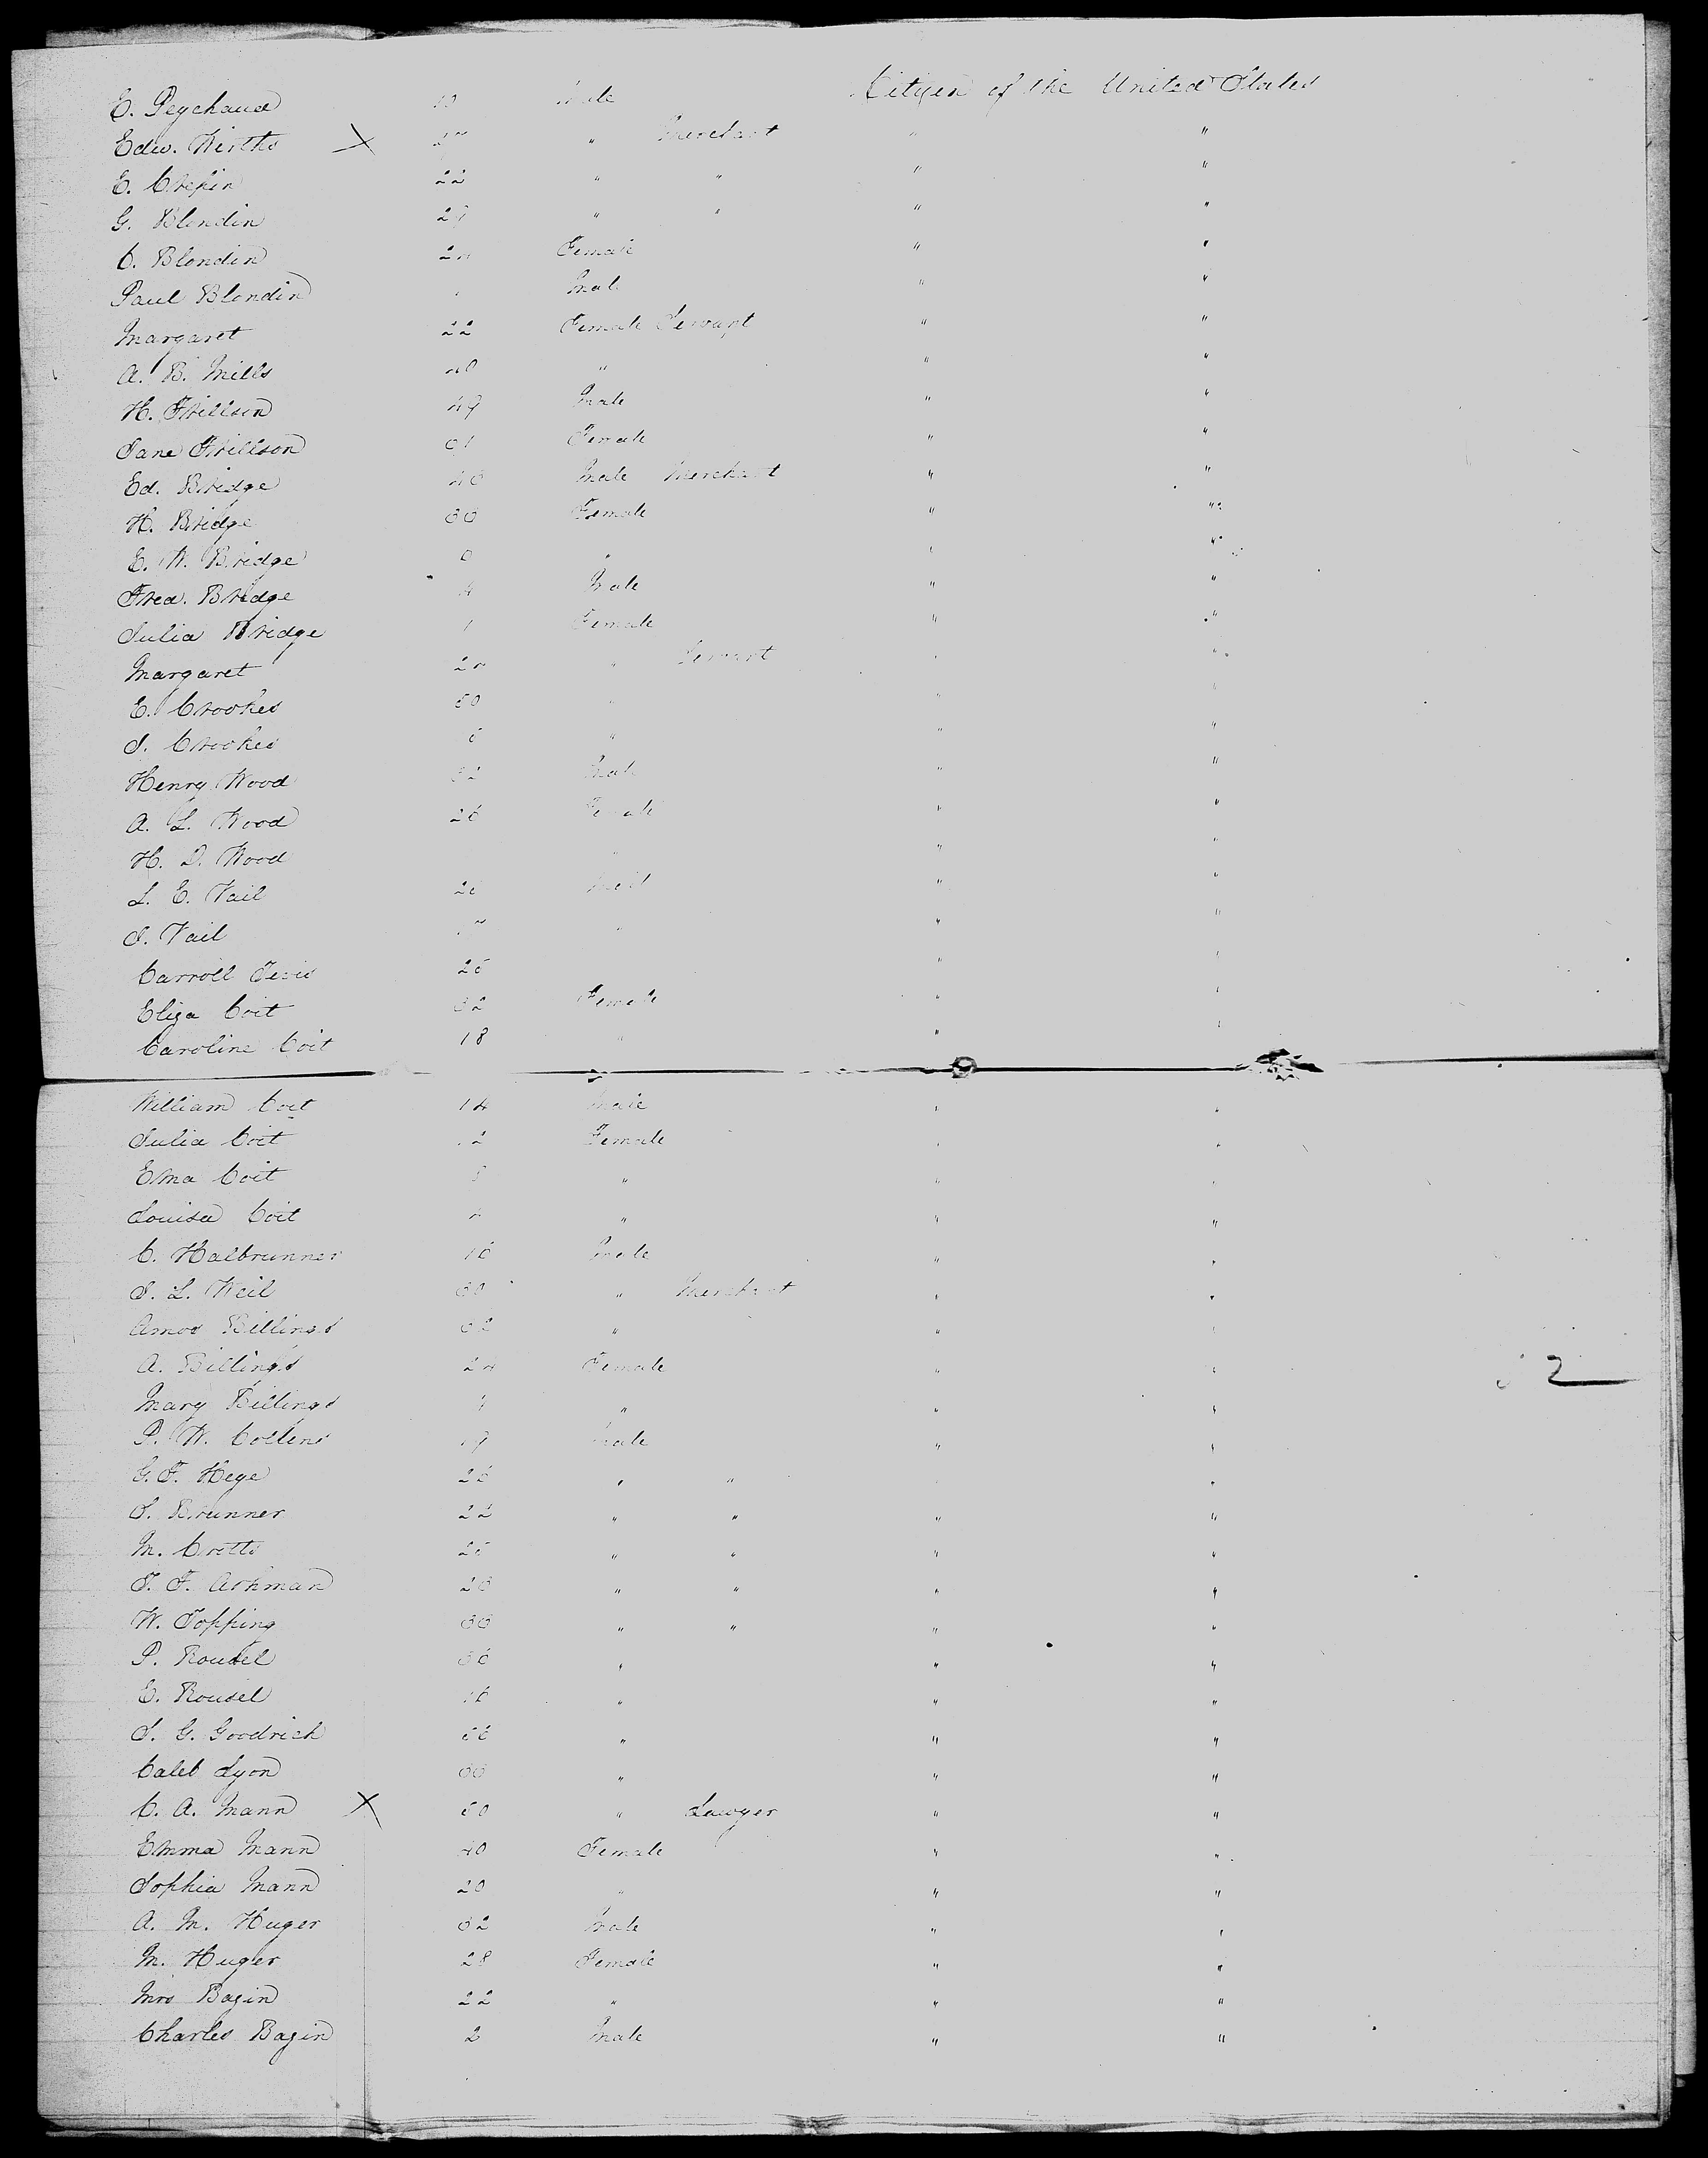 E. Peychaud 10 Male Citizen of the United States
Edw. Wirths X " Merchant " "
E. Crepin 22 " " " "
G. Blondin 29 " " " "
C. Blondin Female " "
Paul Blondin Male " "
Margaret 22 Female Servant " "
A. B. Mills 40 " " "
H. Stillson 49 Male " "
Jane Stillson Female " "
Ed. Bridge Male Merchant " "
H. Bridge 33 Female " "
E. W. Bridge " " "
Fred. Bridge 4 Male " "
Julia Bridge 1 Female " "
Margaret " Servant " "
E. Crookes 50 " " "
J. Crookes " " "
Henry Wood 32 Male " "
A. L. Wood 26 Female " "
H. D. Wood " " "
L. E. Vail Male " "
J. Vail " " "
Carroll Tevis 25 " "
Eliza Coit 32 Female " "
Caroline Coit 18 " " "
William Coit 14 Male " "
Julia Coit 12 Female " "
Ema Coit " " "
Louisa Coit " " "
C. Halbrunner 16 Male " "
J. L. Weil 30 " Merchant " "
Amos Billings 32 " " "
A. Billings 24 Female " "
Mary Billings " " "
P. W. Collens 19 Male " "
G. F. Heye 26 " " "
J. Brunner 22 " " " "
M. Cretts 25 " " " "
T. F. Ashman " " " "
W. Topping 33 " " " "
P. Rousel 36 " " "
E. Rousel 16 " " "
S. G. Goodrich " " "
Caleb Lyon 33 " " "
C. A. Mann X 50 " Lawyer " "
Emma Mann 40 Female " "
Sophia Mann 20 " " "
A. M. Huger 32 Male " "
M. Huger 28 Female " "
Mrs Bagin 22 " " "
Charles Bagin 2 Male " "